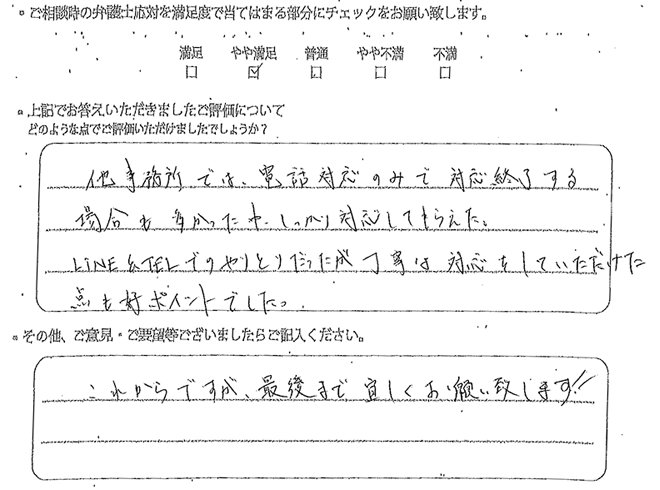 。ご相談時の弁護士応対を満足度で当てはまる部分にチェックをお願い致します。
満足 やや満足 普通 やや不満 不満
□ ☑ □ □ □
。上記でお答えいただきましたご評価について
どのような点でご評価いただけましたでしょうか?
他事務所では、電話対応のみで対応終了する
場合も多かったが、しっかり対応してもらえた。
LINE&TELでのやりとりだったが丁寧な対応をしていただけた
点も好ポイントでした。
。その他、ご意見・ご要望等ございましたらご記入ください。
これからですが、最後まで宜しくお願い致します!!